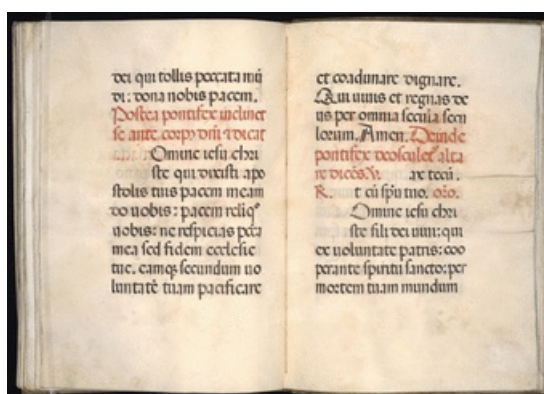 dei qui tollis peccata mū
di: dona nobis pacem.
Postea pontifex inclinet
se ante corpꝰ dn̄i ⁊ dicat
Omine iesu chri
ste qui dixisti apo
stolis tuis pacem meam
do uobis: pacem reliqꝰ
uobis: ne respicias pecca
mea sed fidem ecclesie
tue. eamqꝫ secundum uo
luntatē tuam pacificare
et coadunare dignare.
Qui uiuis et regnas de
us per omnia secula secu
lorum. Amen. Deinde
pontifex deosculetʳ alta
re dicēs ℣. ax tecū.
℟. t cū sp̄u tuo. or̄o.
Omine iesu chri
ste fili dei uiui: qui
ex uoluntate patris: coo
perante spiritu sancto: per
mortem tuam mundum